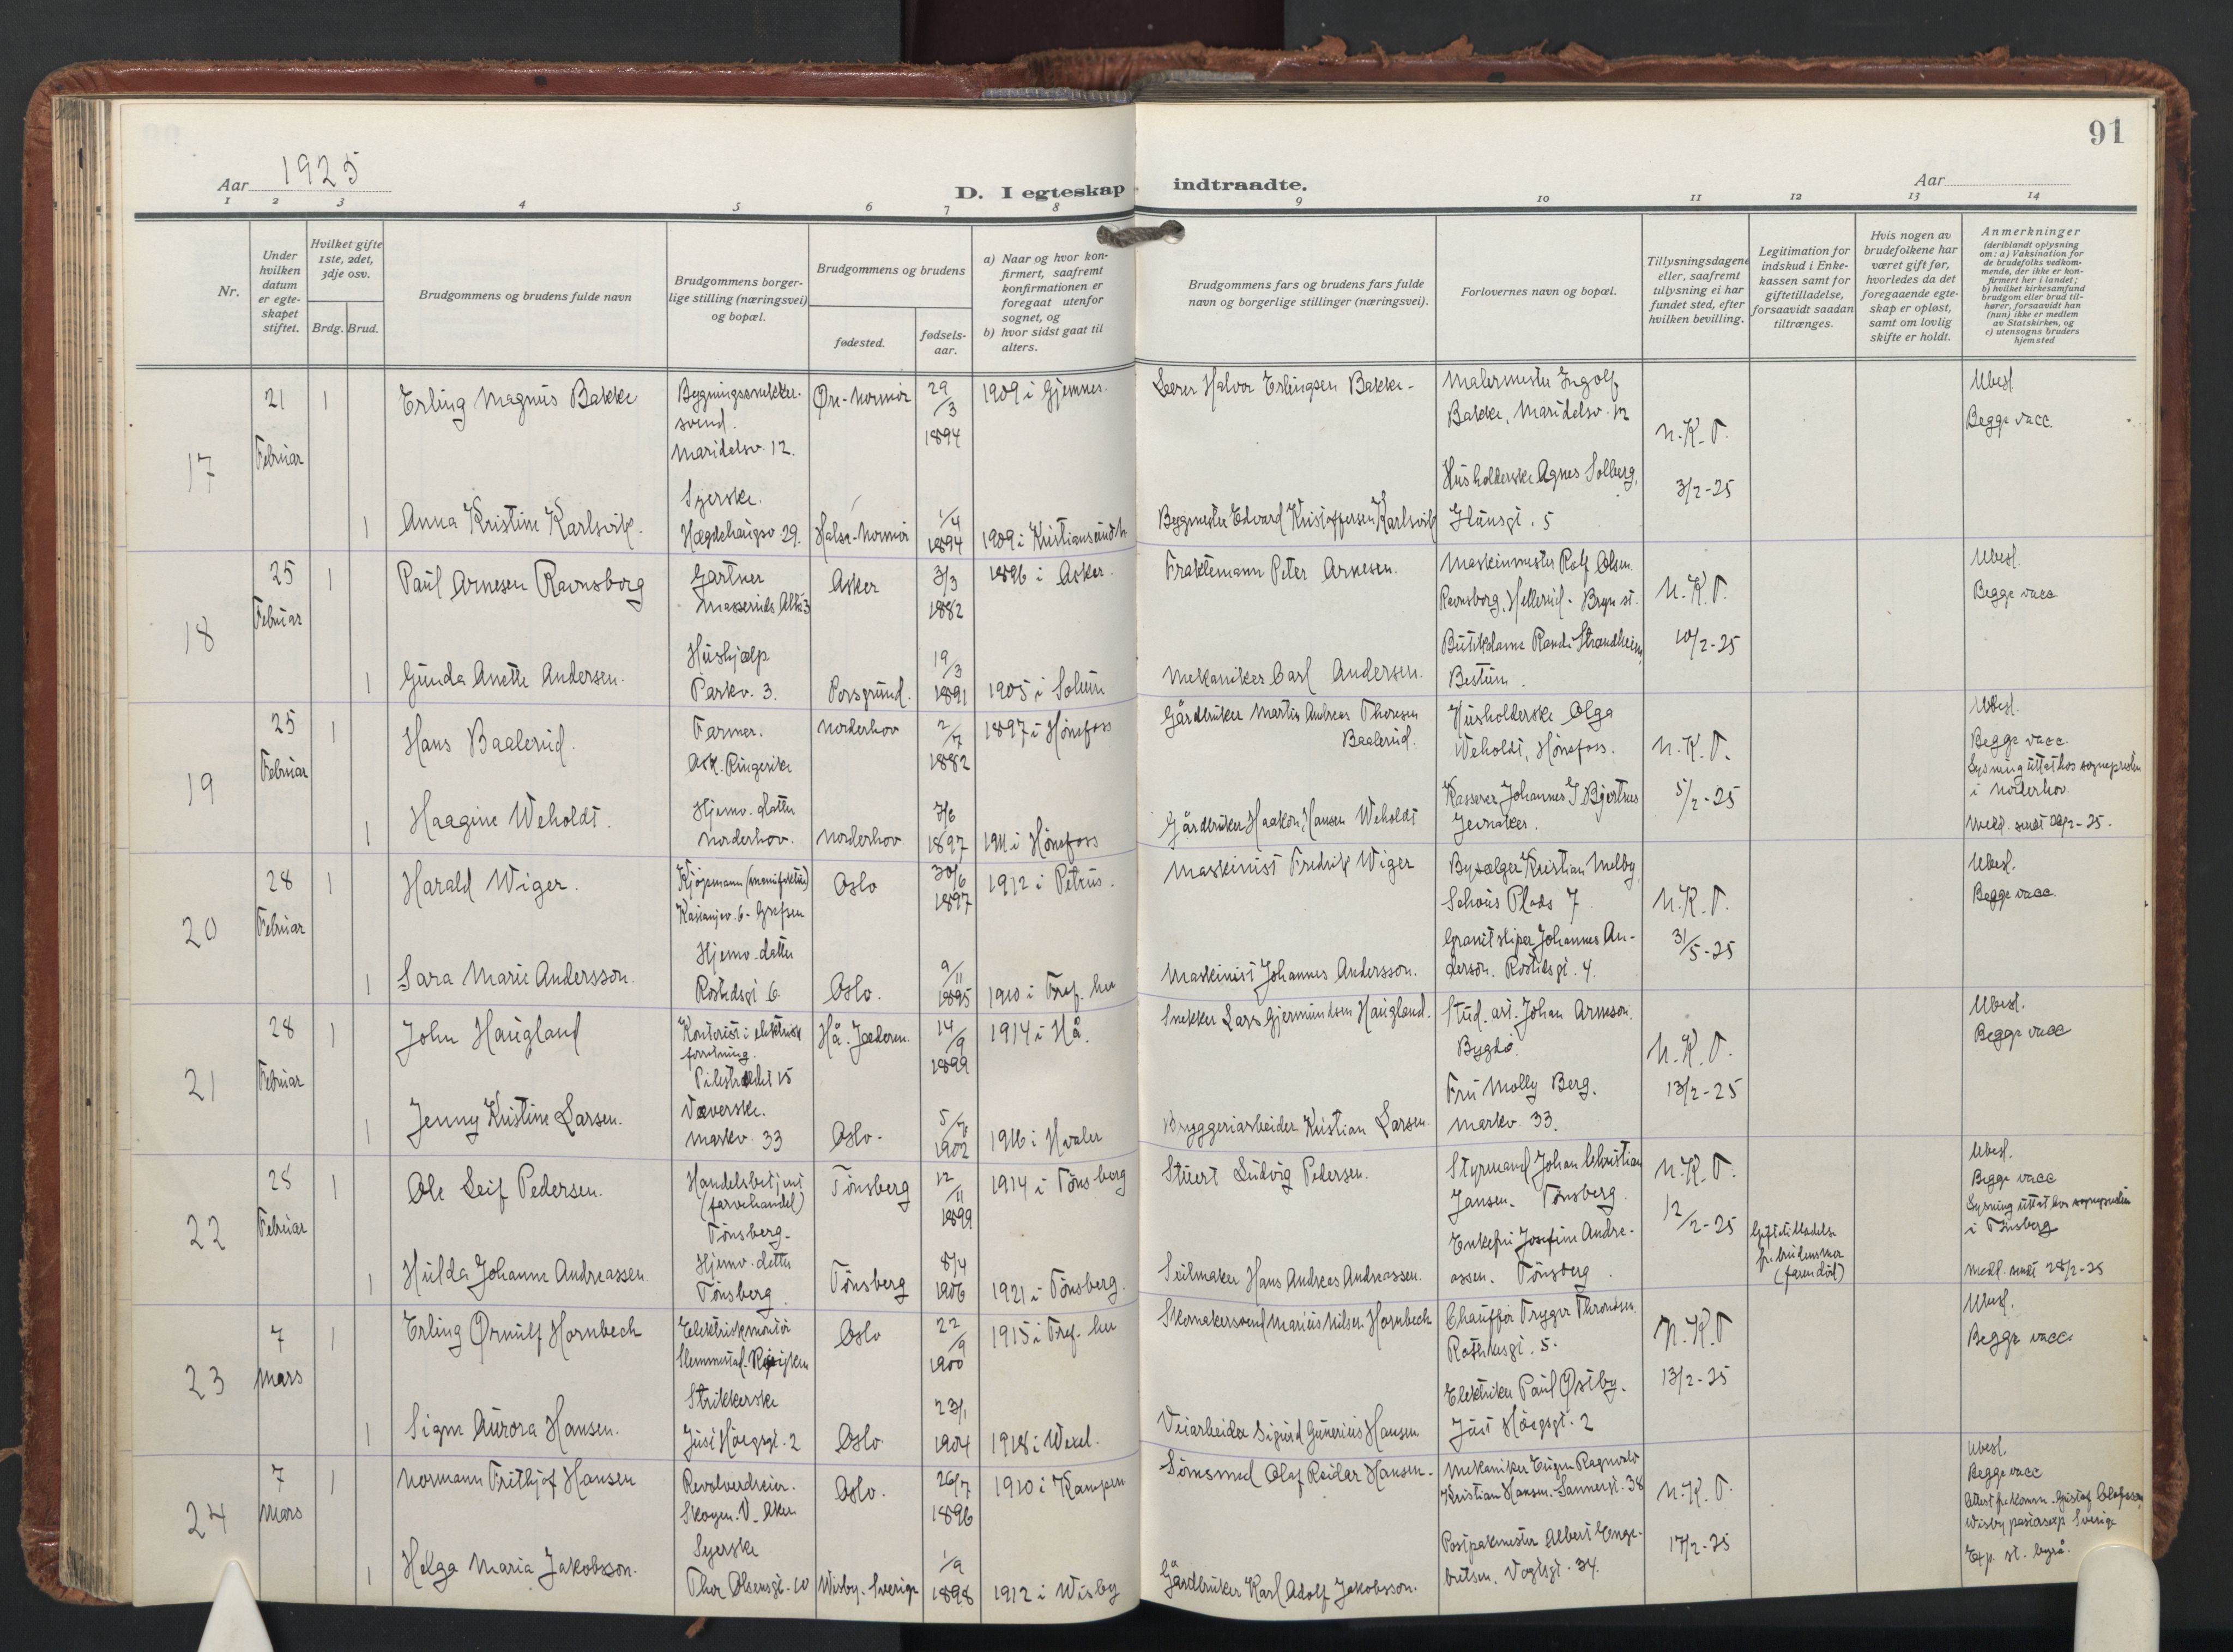 91
Aar 1925
D. I egteskap indtraadte.
Aar
1 2 3 4 5 6 7 8 9 10 11 12 13 14
Nr.
Under
hvilken
datum
er egte-
skapet
stiftet.
Hvilket gifte
1ste, 2det,
3dje osv.
Brdg. Brud.
Brudgommens og brudens fulde navn
Brudgommens borger-
lige stilling (næringsvei)
og bopæl.
Brudgommens og brudens
fødested.
fødsels-
aar.
a) Naar og hvor kon-
firmert, saafremt
konfirmationen er
foregaat utenfor
sognet, og
b) hvor sidst gaat til
alters.
Brudgommens fars og brudens fars fulde
navn og borgerlige stillinger (næringsvei).
Forlovernes navn og bopæl.
Tillysningsdagene
eller, saafremt
tillysning ei har
fundet sted, efter
hvilken bevilling.
Legitimation for
indskud i Enke-
kassen samt for
giftetilladelse,
forsaavidt saadan
tiltrænges.
Hvis nogen av
brudefolkene har
været gift før,
hvorledes da det
foregaaende egte-
skap er opløst,
samt om lovlig
skifte er holdt.
Anmerkninger
(deriblandt oplysning
om: a) Vaksination for
de brudefolks vedkom-
mende, der ikke er kon-
firmert her i landet;
b) hvilket kirkesamfund
brudgom eller brud til-
hører, forsaavidt han
(hun) ikke er medlem
av Statskirken, og
c) utensogns bruders
hjemsted
17
21
Februar
1
Erling Magnus Bakke
Bygningssnekker-
svend.
Maridalsv. 12.
Øre-Normør
29/3
1894
1909 i Gjemnes.
Lærer Halvor Erlingsen Bakke-
Malermester Ingolf
Bakke, Maridalsv. 12
N.K.T.
3/2-25
Ubesl.
Begge vacc.
1
Anna Kristine Karlsvik.
Syerske.
Hægdehaugsv. 29.
Halsa-Normør
1/4
1894
1909 i Kristiansund N.
Bygmester Edvard Kristoffersen Karlsvik
Husholderske Agnes Solberg,
5
18
25
Februar
1
Paul Arnesen Ravnsborg
Gartner
Asker
3/3
1882
1896 i Asker.
Fraktemann Peter Arnesen.
Maskinmester Rolf Olsen
Ravnsborg, Hellerud - Bryn st.
N.K.T.
10/2-25
Ubesl.
Begge vacc
1
Gunda Anette Andersen.
Hushjælp
Parkv. 3.
Porsgrund.
19/3
1891
1905 i Solum
Mekaniker Carl Andersen.
Butikdame Randi Strandheim,
Bestum.
19
25
Februar
1
Hans Baalerud.
Farmer.
Ask. Ringerike
Norderhov
2/7
1882
1897 i Hønefoss
Gårdbruker Martin Andreas Thoresen
Baalerud.
Husholderske Olga
Weholdt, Hønefoss.
N.K.T.
5/2-25
Ubesl.
Begge vacc.
Lysning uttat hos sognepresten
i Norderhov.
1
Haagine Weholdt.
Hjemv. datter
Norderhov.
Norderhov
7/6
1897
1911 i Hønefoss
Gårdbruker Haakon Hansen Weholdt
Kasserer Johannes G Bjertnes
Jevnaker.
20
28
Februar
1
Harald Wiger.
Kjøpmann (manufaktur)
Kastanjev. 6 - Grefsen
Oslo
30/6
1897
1912 i Petrus.
Maskinist Fredrik Wiger
Bysælger Kristian Melby
Schous Plads 7
N.K.T.
31/5-25
Ubesl.
Begge vacc.
1
Sara Marie Andersson.
Hjemv. datter
Rostedsgt 6.
Oslo.
9/11
1895
1910 i Tref. her
Maskinist Johannes Andersson.
Granitsliper Johannes An-
derson. Rostedsgt. 4.
21
28
Februar
1
John Haugland
Kontorist i elektrisk
forretning.
Pilestrædet 15
Hå. Jæderen.
14/9
1899
1914 i Hå.
Snekker Lars Gjermundsen Haugland.
Stud. art. Johan Arneson.
Bygdø.
N.K.T.
13/2-25
Ubesl.
Begge vacc
1
Jenny Kristine Larsen.
Væverske.
Markv. 33
Oslo-
1902
1916 i Hvaler
Bryggeriarbeider Kristian Larsen.
Fru Molly Berg.
Markv. 33.
22
28
Februar
1
Ole Leif Pedersen.
Handelsbetjent
(farvehandel)
Tønsberg-
Tønsberg
12/11
1899
1914 i Tønsberg
Stuert Ludvig Pedersen.
Styrmand Johan Christian
Jansen. Tønsberg.
N.K.T.
12/2-25
Giftetilladelse
fr. brudens mor
(faren død)
Ubesl.
Begge vacc
Lysning uttat hos sognepresten
i Tønsberg
Medd. sendt 28/2-25
1
Hulda Johanne Andreassen.
Hjemv. datter
Tønsberg.
Tønsberg
8/4
1906
1921 i Tønsberg.
Seilmaker Hans Andreas Andreassen.
Enkefru Josefine Andre-
assen. Tønsberg.
23
7
Mars
1
Erling Ørnulf Hornbech
Elektriskmontør
Slemmestad-Røyken
Oslo
22/9
1900
1915 i Tref. her
Skomakersvend Marius Nilsen Hornbech
Chauffør Trygve Throndsen.
5.
N.K.T
13/2-25
Ubesl.
Begge vacc.
1
Signe Aurora Hansen.
Strikkerske
Just Høegsgt. 2
Oslo
27/1
1904
1918 i Wexel.
Veiarbeider Sigurd Gunerius Hansen
Elektriker Paul Østby.
Just Høegsgt. 2
24
7
Mars
1
Normann Frithjof Hansen
Revolverdreier.
Skøyen. V. Aker
Oslo.
26/7
1896
1910 i Kampen
Sømsmed Olaf Reidar Hansen.
Mekaniker Eugen Ragnvald
Kristian Hansen. Sannergt. 38
N.K.T.
17/2-25
Ubesl.
Begge vacc
Attest fr komm. Gustaf Olofsson,
Wisby pastorsexp Sverige
Exp. st. byrå.
1
Helga Maria Jakobsson.
Syerske
Thor Olsensgt. 10
Wisby. Sverige
1/9
1898
1912 i Wisby
Gårdbruker Karl Adolf Jakobsson.
Postpakmester Albert Enge-
bretsen. Vogtsgt. 34.